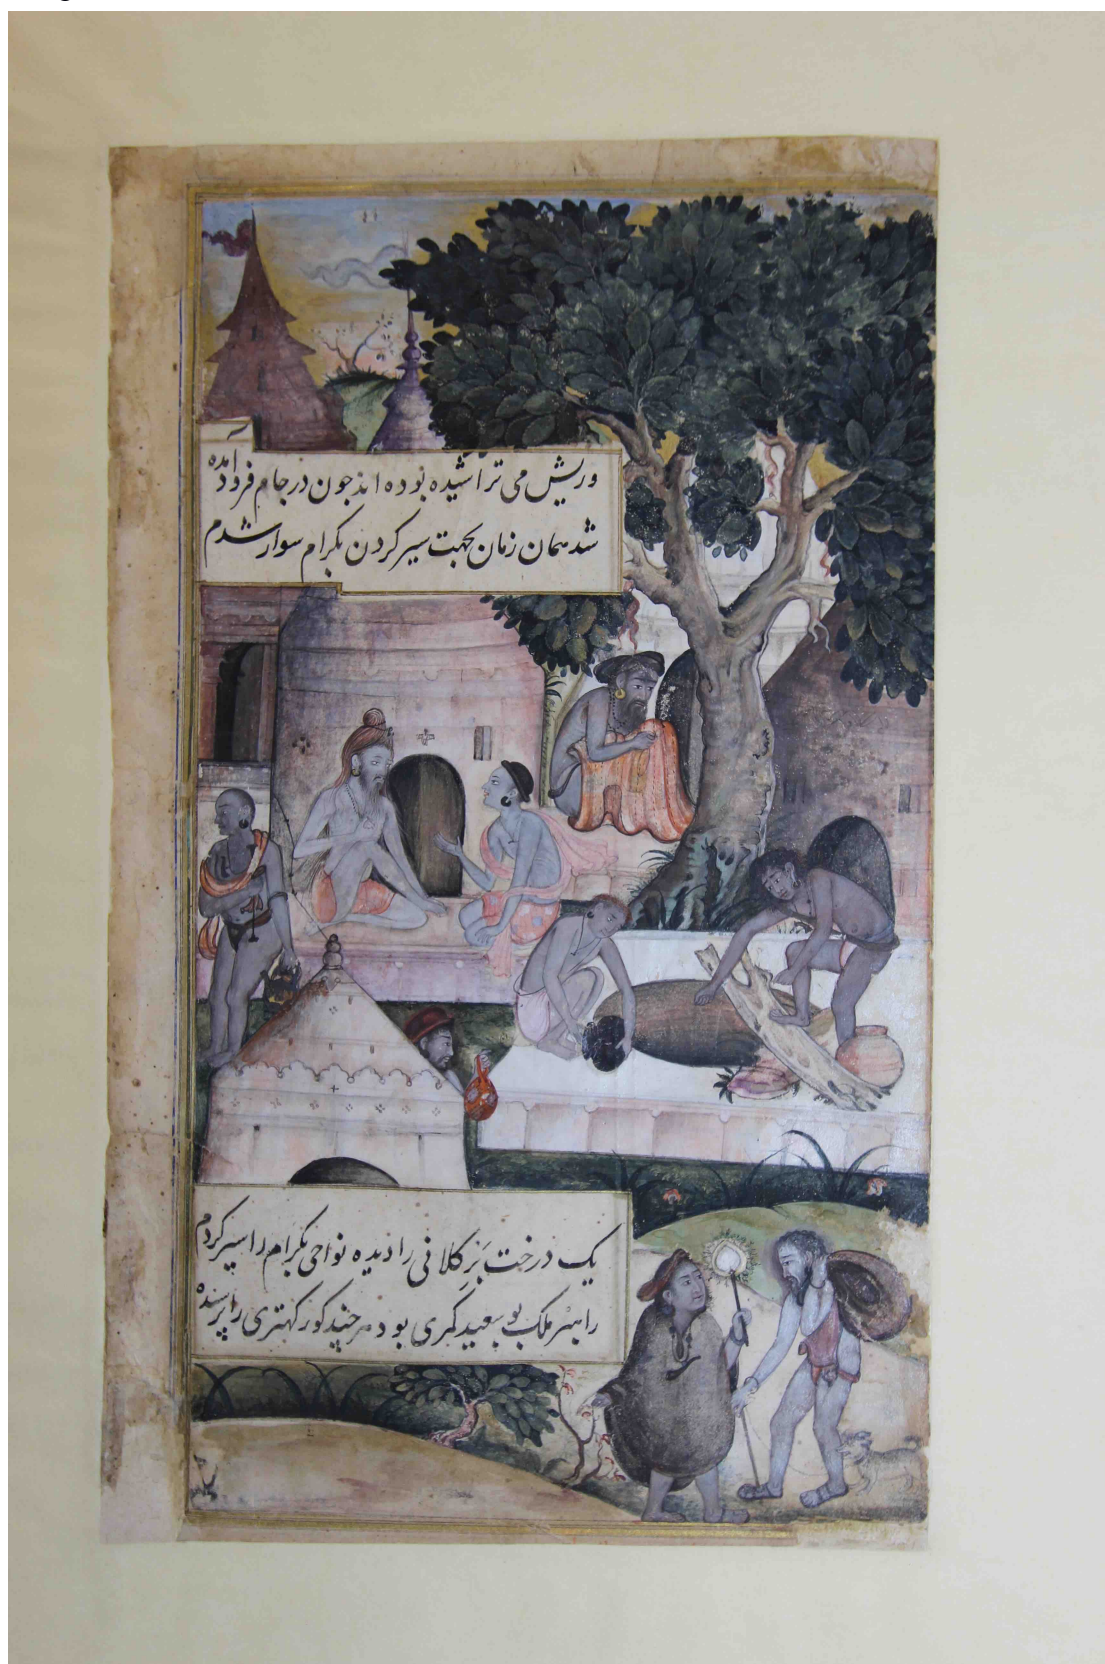 وریش می تراشیده بوده اند چون در جام فرود آمده
شد همان زمان بجهت سیر کردن بکرام سوار شدم
یک درخت بَر کلانی را دیده نواحی بکرام را سیر کردم
راهبر ملک بو سعید کمری بود هر چند کور کهتری را پرسیده